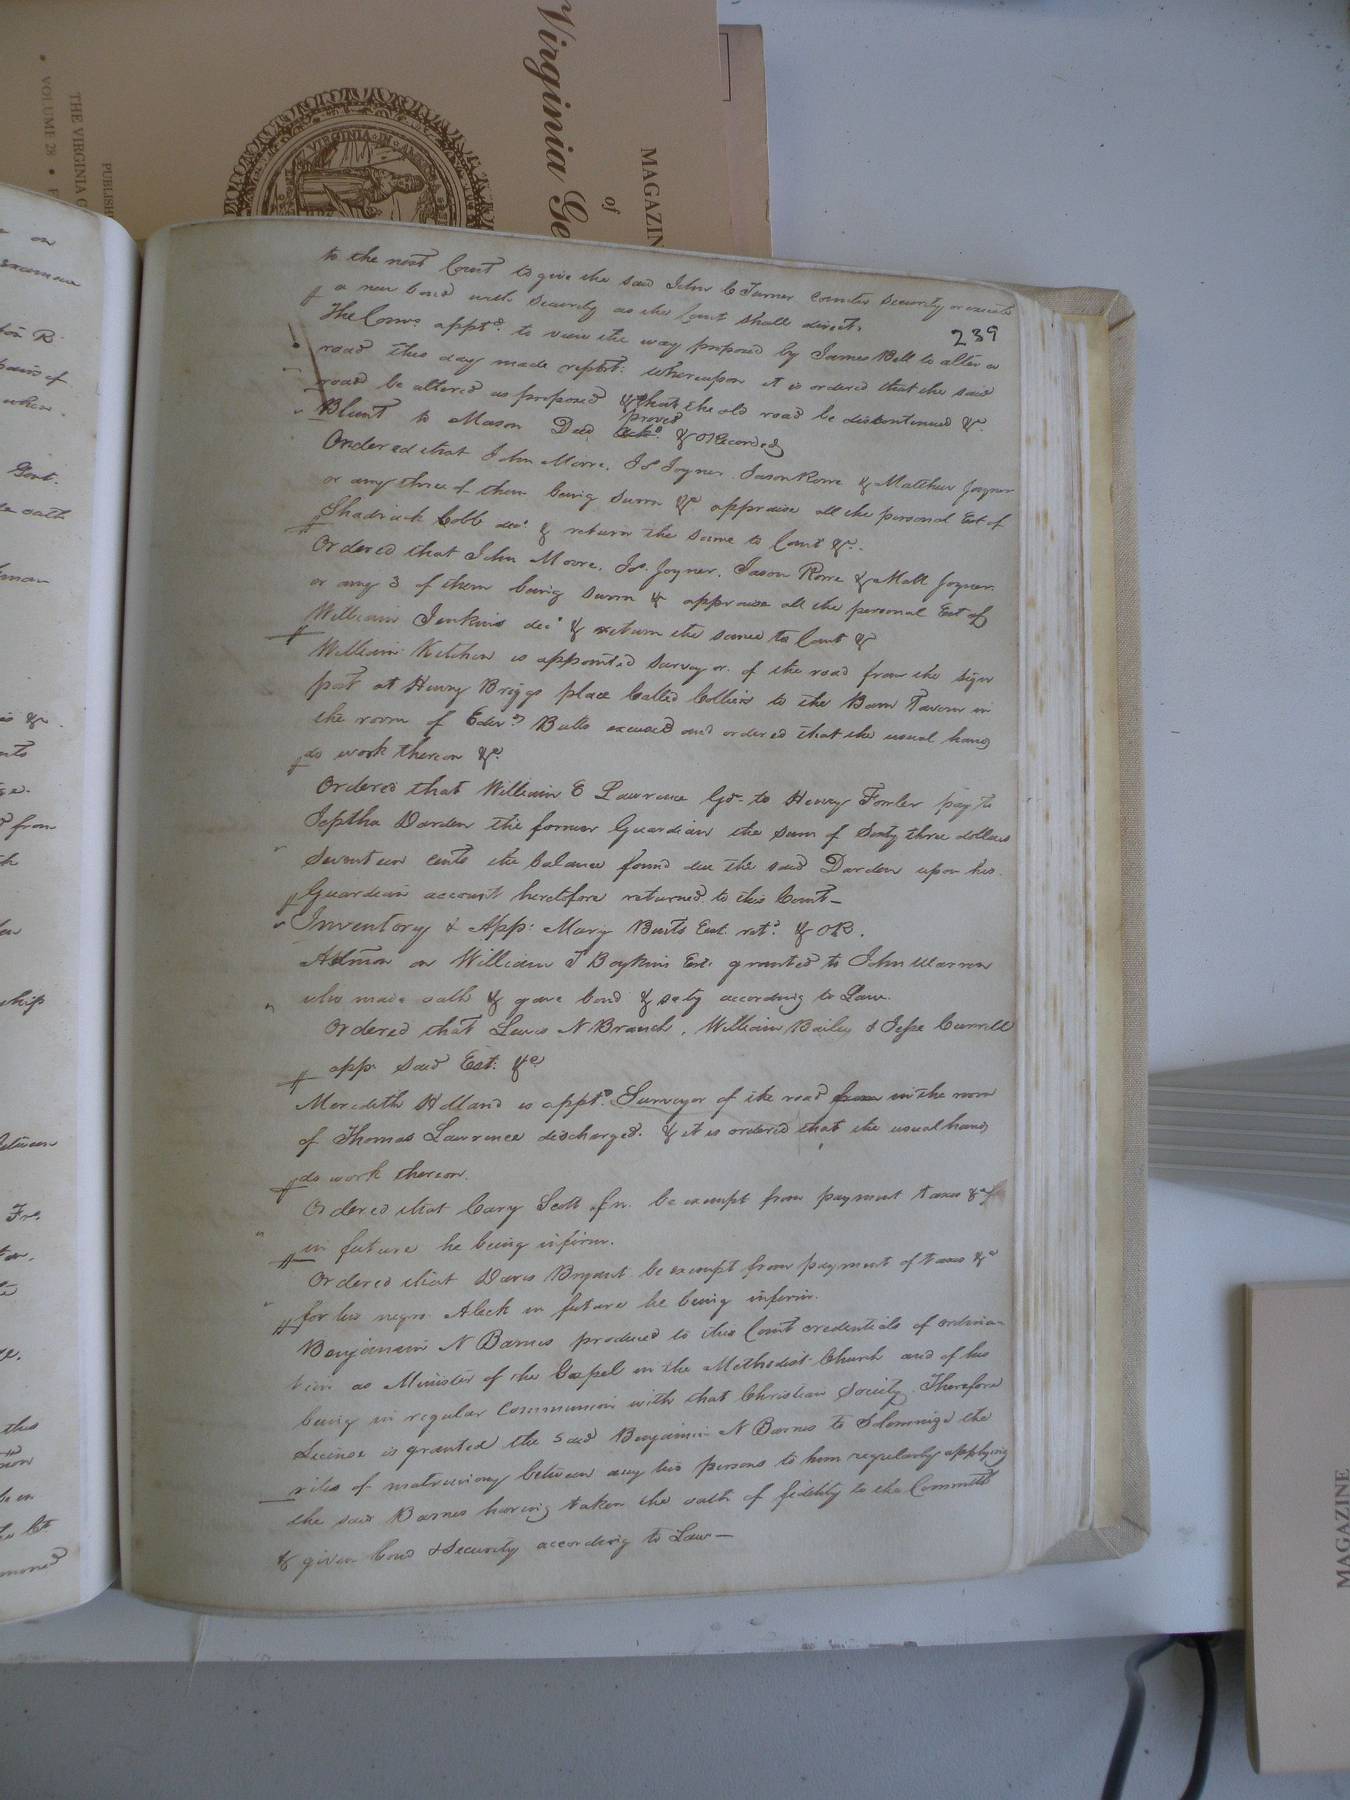 Virginia Ge
of
MAGAZIN
PUBLISH
THE VIRGINIA G
• VOLUME 28 •
VIRGINIA IN
239
to the next Court to give the said John C Turner counter security or execute
a new bond with security as the Court shall direct.
The Comrs apptd. to view the way proposed by James Bell to alter a
road this day made report: whereupon it is ordered that the said
road be altered as proposed & that the old road be discontinued &c.
Blunt to Mason Deed proved & ORecorded
Ordered that John Moore, Jos Joyner, Jason Rorre & Matthew Joyner
or any three of them being sworn &c appraise all the personal Est of
Shadrack Cobb decd & return the same to Court &c.
Ordered that John Moore, Jos. Joyner, Jason Rorre & Matt Joyner
or any 3 of them being sworn &c appraise all the personal Est of
William Jenkins decd & return the same to Court &c
William Kitchen is appointed surveyor of the road from the sign
post at Henry Briggs place Called Colliers to the Barn Tavern in
the room of Edwd. Butts excused and ordered that the usual hands
do work thereon &c.
Ordered that William E Lawrence Gdn. to Henry Fowler pay to
Jeptha Darden the former Guardian the sum of Sixty three dollars
seventeen cents the balance found due the said Darden upon his
Guardian account heretofore returned to this Court—
Inventory & App: Mary Butts Est. retd. & OR.
Admon on William T Boykins Est. granted to John Warren
who made oath & gave bond & secty according to Law.
Ordered that Lewis N Branch, William Bailey & Jesse Currell
app. said Est. &c
Meredith Holland is apptd. Surveyor of the road from in the room
of Thomas Lawrence discharged. & it is ordered that the usual hands
do work thereon.
Ordered that Cary Scott fn. be exempt from payment taxes &c
in future he being infirm.
Ordered that Davis Bryant be exempt from payment of taxes &c
for his negro Aleck in future he being infirm.
Benjamin N Barnes produced to this Court credentials of ordina-
tion as Minister of the Gospel in the Methodist Church and of his
being in regular Communion with that Christian Society. Therefore
License is granted the said Benjamin N Barnes to Solemnize the
rites of matrimony between any two persons to him regularly applying
the said Barnes having taken the oath of fidelity to the Commth
& given bond & Security according to Law—
MAGAZINE